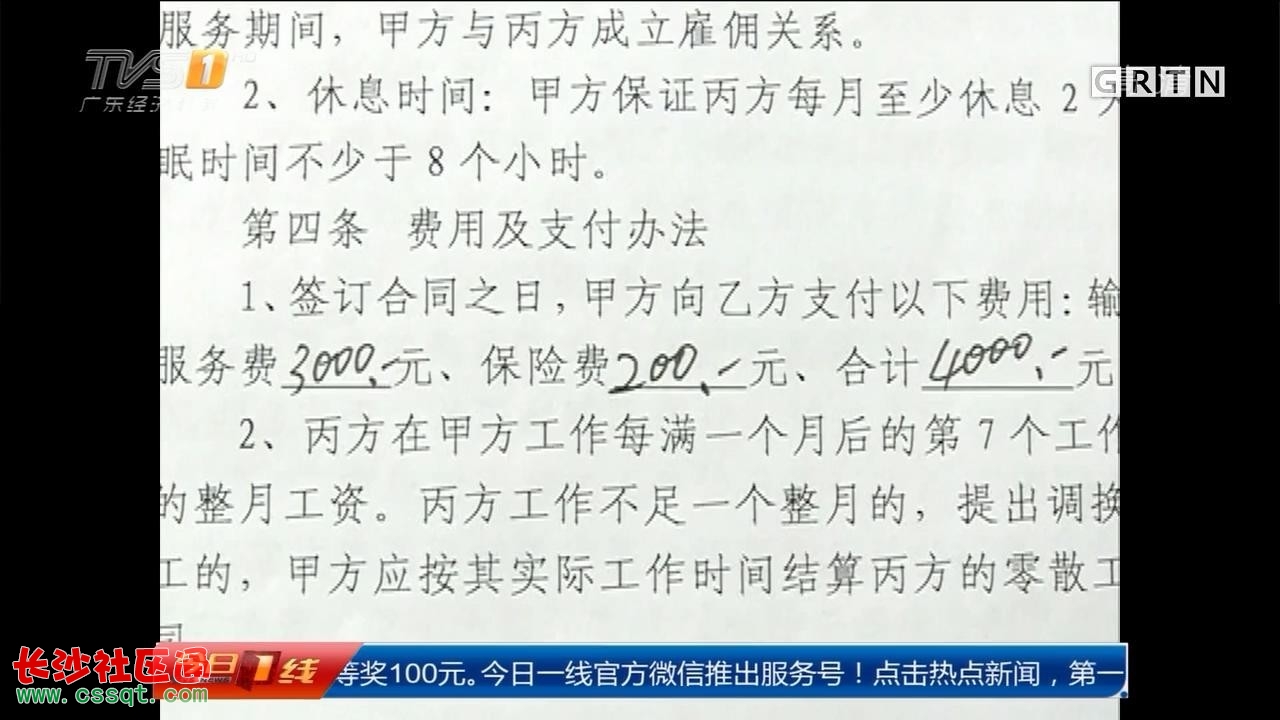 服务期间，甲方与丙方成立雇佣关系。
TVS1
GRTN
2、休息时间：甲方保证丙方每月至少休息 2
眠时间不少于 8 个小时。
第四条 费用及支付办法
1、签订合同之日，甲方向乙方支付以下费用：输
服务费3000.-元、保险费200.-元、合计4000.-元
2、丙方在甲方工作每满一个月后的第 7 个工作
的整月工资。丙方工作不足一个整月的，提出调换
工的，甲方应按其实际工作时间结算丙方的零散工
长沙社区网
www.cssqt.com
今日一线
等奖100元。今日一线官方微信推出服务号！点击热点新闻，第一